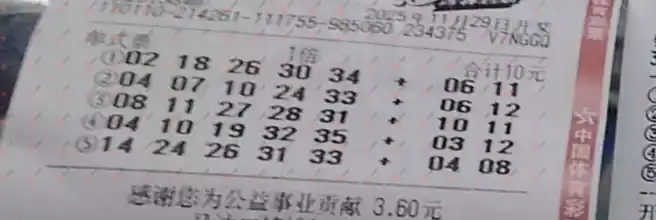 110110-214261-111755-985060 234375 V7NGGQ
2025年11月29日开奖
单式票 1倍 合计10元
①02 18 26 30 34 + 06 11
②04 07 10 24 33 + 06 12
③08 11 27 28 31 + 10 11
④04 10 19 32 35 + 03 12
⑤14 24 26 31 33 + 04 08
感谢您为公益事业贡献 3.60元
中国体育彩